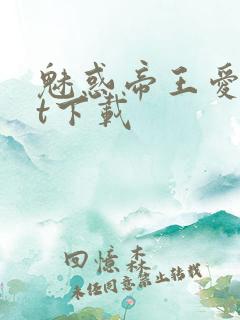 魅惑帝王爱
t下载
回憶森林
未经同意禁止转载